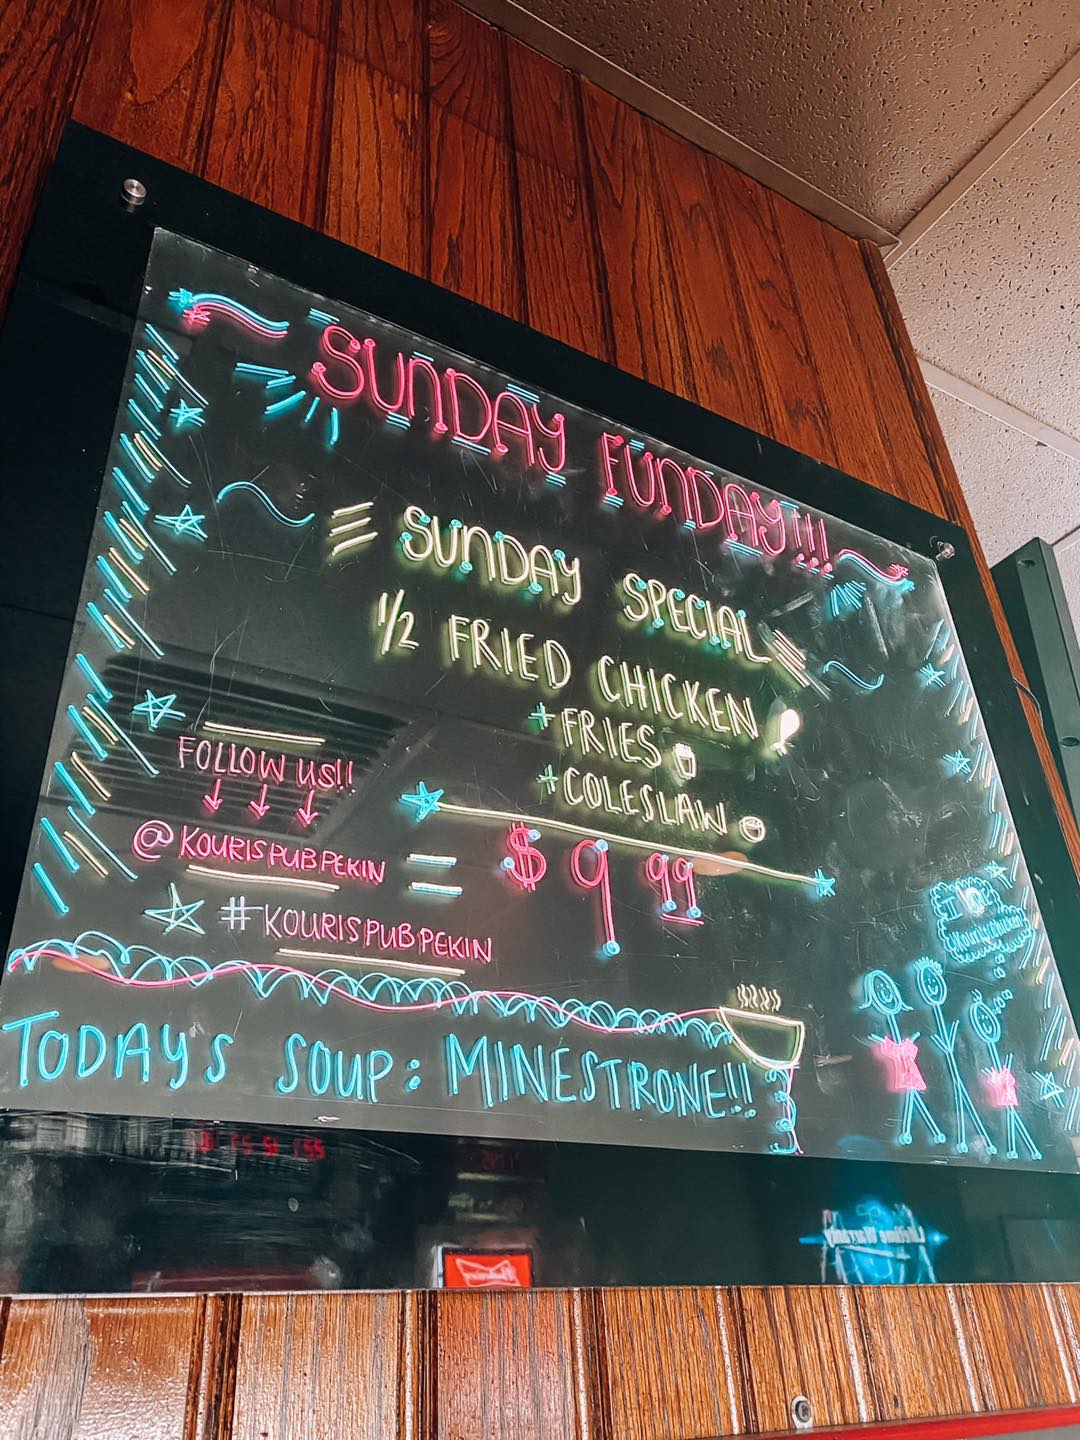 SUNDAY FUNDAY!!!
SUNDAY SPECIAL
1/2 FRIED CHICKEN
+FRIES
+COLESLAW
$9.99
FOLLOW US!!
@KOURISPUBPEKIN
#KOURISPUBPEKIN
TODAY'S SOUP: MINESTRONE!!!
Lifetime Warranty